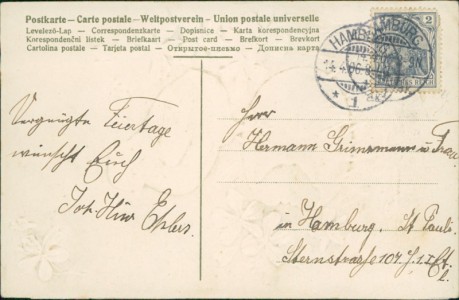 Postkarte – Carte postale – Weltpostverein – Union postale universelle
Levelező-Lap — Correspondenzkarte — Dopisnice — Karta korespondencyjna
Korespondenční lístek — Briefkaart — Post card — Brefkort — Brevkort
Cartolina postale — Tarjeta postal — Открытое письмо — Дописна карта
HAMBURG
* 1
2
Vergnügte Feiertage
wünscht Euch
Joh. Hinr. Ehlers.
Herr
Hermann Grimsmann u. Frau.
in Hamburg. St. Pauli.
Sternstrasse 107.